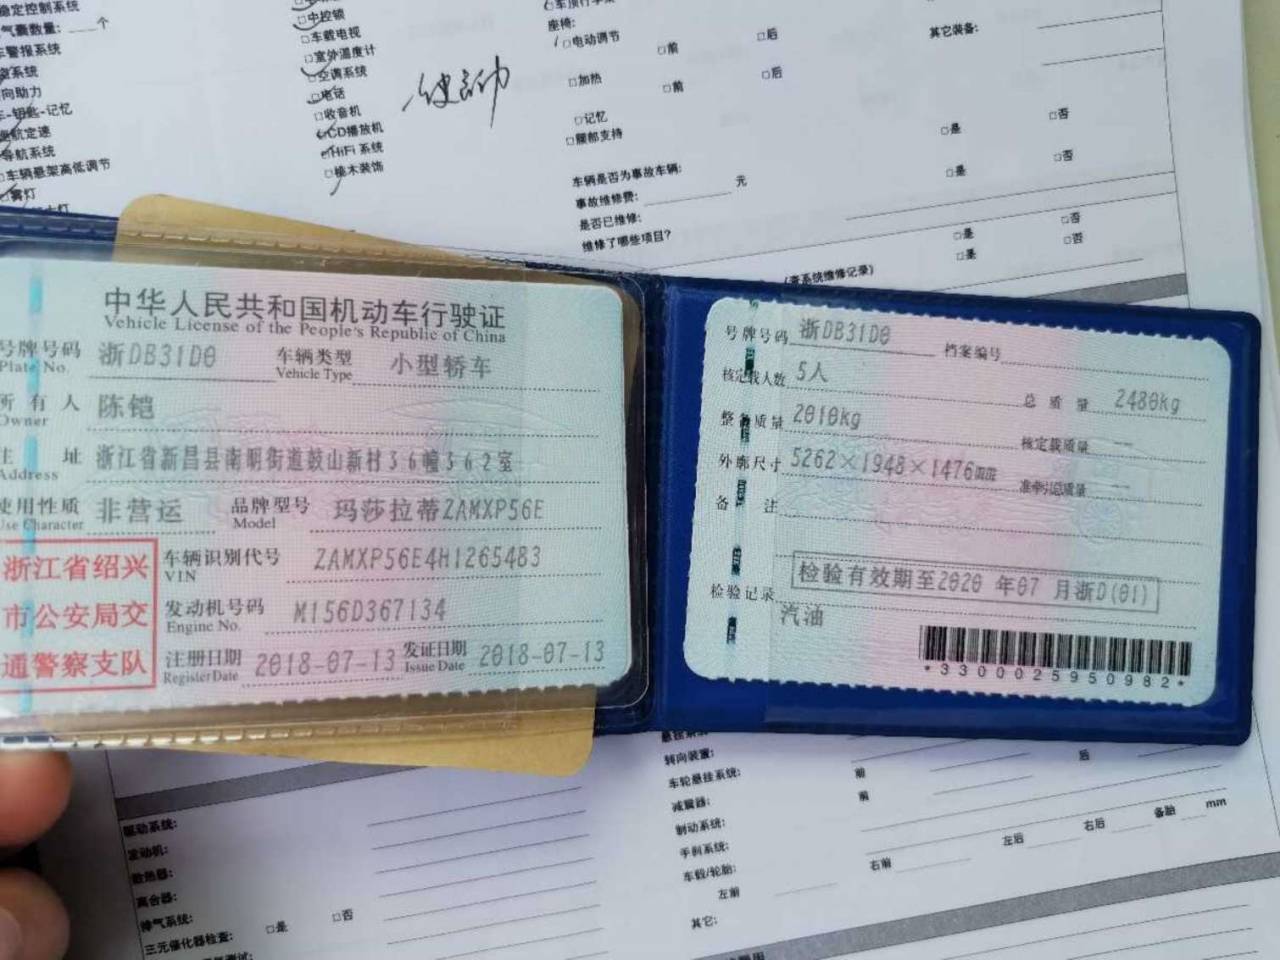 稳定控制系统
气囊数量:____个
车警报系统
向助力
车-钥匙-记忆
巡航定速
导航系统
□车辆悬架高低调节
□雾灯
□中控锁
□车载电视
□室外温度计
□空调系统
□电话
□收音机
□CD播放机
□HiFi 系统
□桃木装饰
座椅:
□电动调节 □前 □后
□加热 □前 □后
□记忆
□腰部支持
其它装备:
车辆是否为事故车辆: □是 □否
事故维修费:____元
是否已维修: □是 □否
维修了哪些项目?
□是 □否
□是 □否
(查系统维修记录)
中华人民共和国机动车行驶证
Vehicle License of the People's Republic of China
号牌号码 浙DB31D0 车辆类型 小型轿车
Plate No. Vehicle Type
所有人 陈铠
Owner
住址 浙江省新昌县南明街道鼓山新村36幢362室
Address
使用性质 非营运 品牌型号 玛莎拉蒂ZAMXP56E
Use Character Model
浙江省绍兴
市公安局交
通警察支队
车辆识别代号 ZAMXP56E4H1265483
VIN
发动机号码 M156D367134
Engine No.
注册日期 2018-07-13 发证日期 2018-07-13
Register Date Issue Date
号牌号码 浙DB31D0 档案编号
核定载人数 5人 总质量 2480kg
整备质量 2010kg 核定载质量 --
外廓尺寸 5262×1948×1476mm 准牵引总质量 --
备注
检验有效期至2020 年07 月浙D(01)
检验记录
汽油
*3300025950982*
转向装置:
车轮悬挂系统: 前 后
减震器: 前
制动系统:
手刹系统:
车毂/轮胎:
左前 右前 左后 右后 备胎 mm
其它:
驱动系统:
发动机:
散热器:
离合器:
排气系统:
三元催化器检查: □是 □否